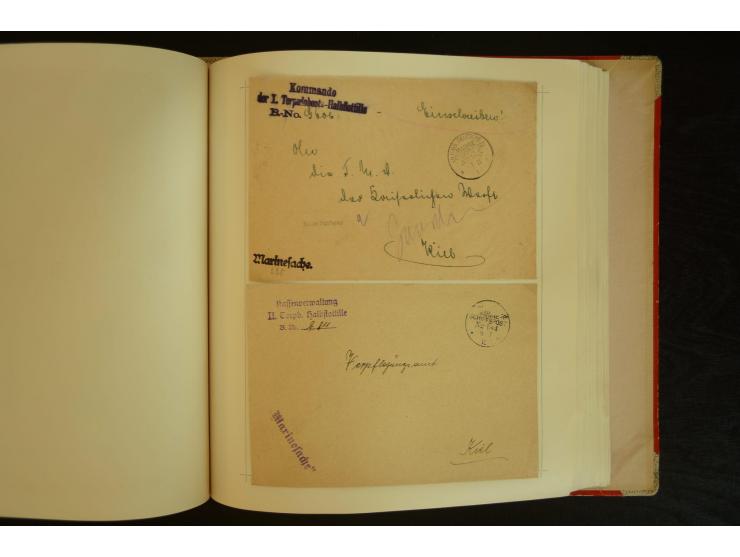 Kommando
der I. Torpedoboots-Halbflottille
B.-No. 9606
Einschreiben!
An
die T. M. A.
der Kaiserlichen Werft
Kiel
Marinesache.
Kassenverwaltung
II. Torpb. Halbflottille
B. No.
SCHIFFSPOST
Verpflegungsamt
Kiel
Marinesache"